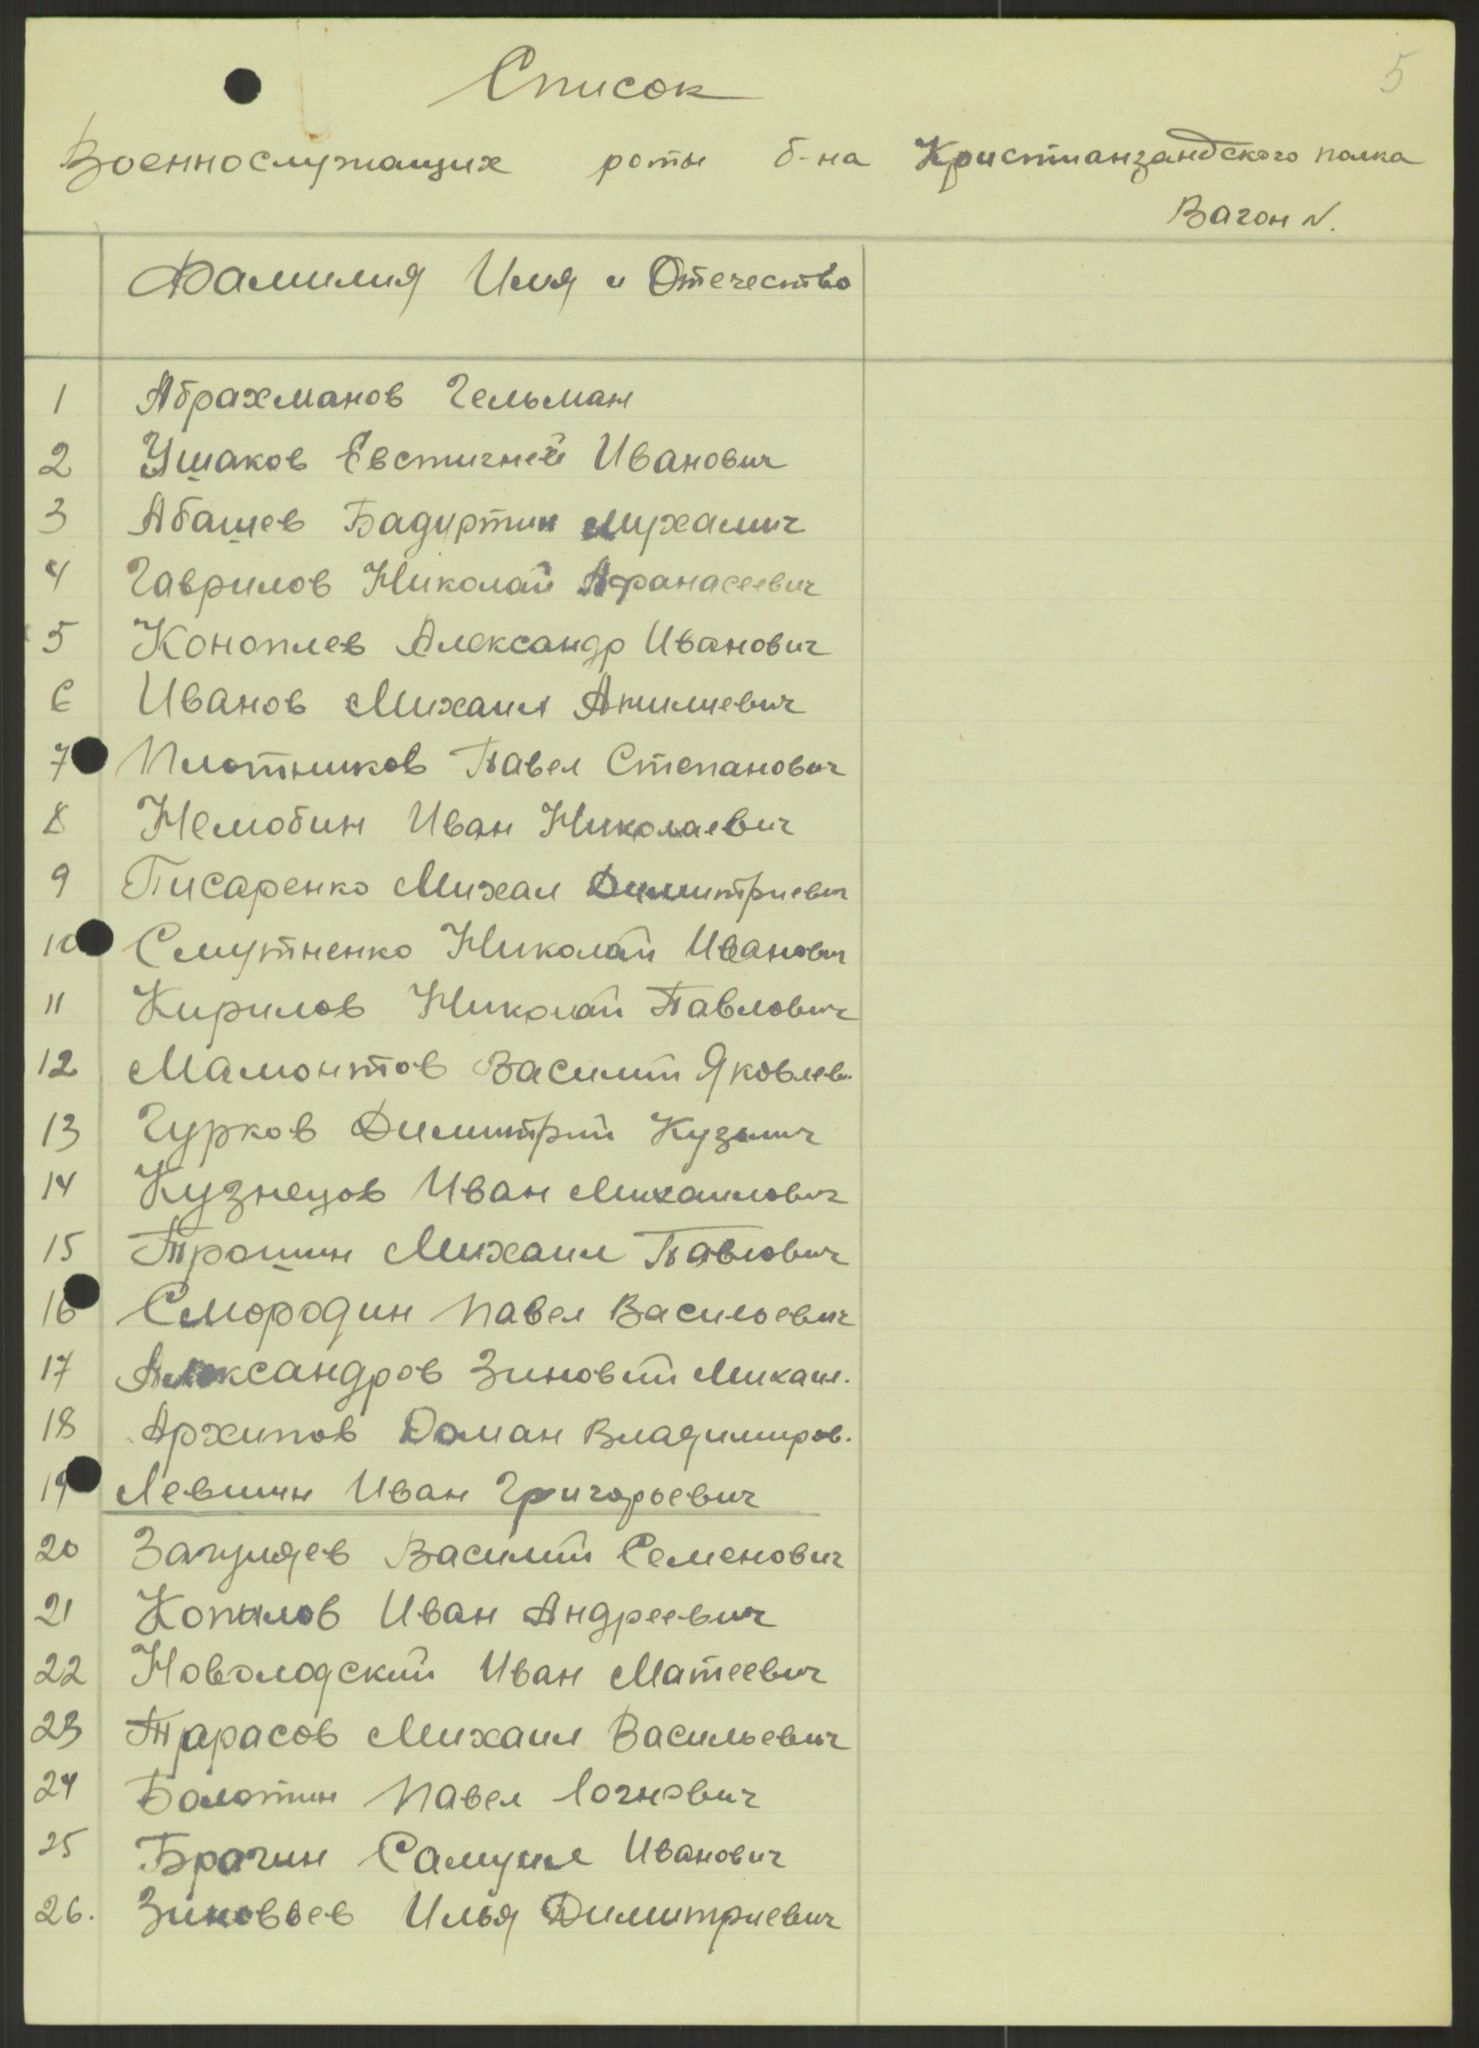 5
Список
Военнослужащих роты б-на Кристианзандского полка
Вагон N.
Фамилия Имя и Отечество
1 Абрахманов Гельман
2 Ушаков Евстигней Иванович
3 Абашев Бадуртин Мухамич
4 Гаврилов Николай Афанасеевич
5 Коноплев Александр Иванович
6 Иванов Михаил
7 Плотников Павел Степанович
8 Немобин Иван Николаевич
9 Писаренко Михаил Димитриевич
10 Смутненко Николай Иванович
11 Кирилов Николай Павлович
12 Мамонтов Василий Яковлев.
13 Гурков Димитрий Кузьмич
14 Кузнецов Иван Михаилович
15 Трошин Михаил Павлович
16 Смородин Павел Васильевич
17 Александров Зиновий Михаил.
18 Архипов Роман Владимиров.
19 Левшин Иван Григорьевич
20 Василий Семенович
21 Копылов Иван Андреевич
22 Новолодский Иван Матеевич
23 Тарасов Михаил Васильевич
24 Болотин Павел Логнович
25 Брагин Самуил Иванович
26. Зиновьев Илья Димитриевич